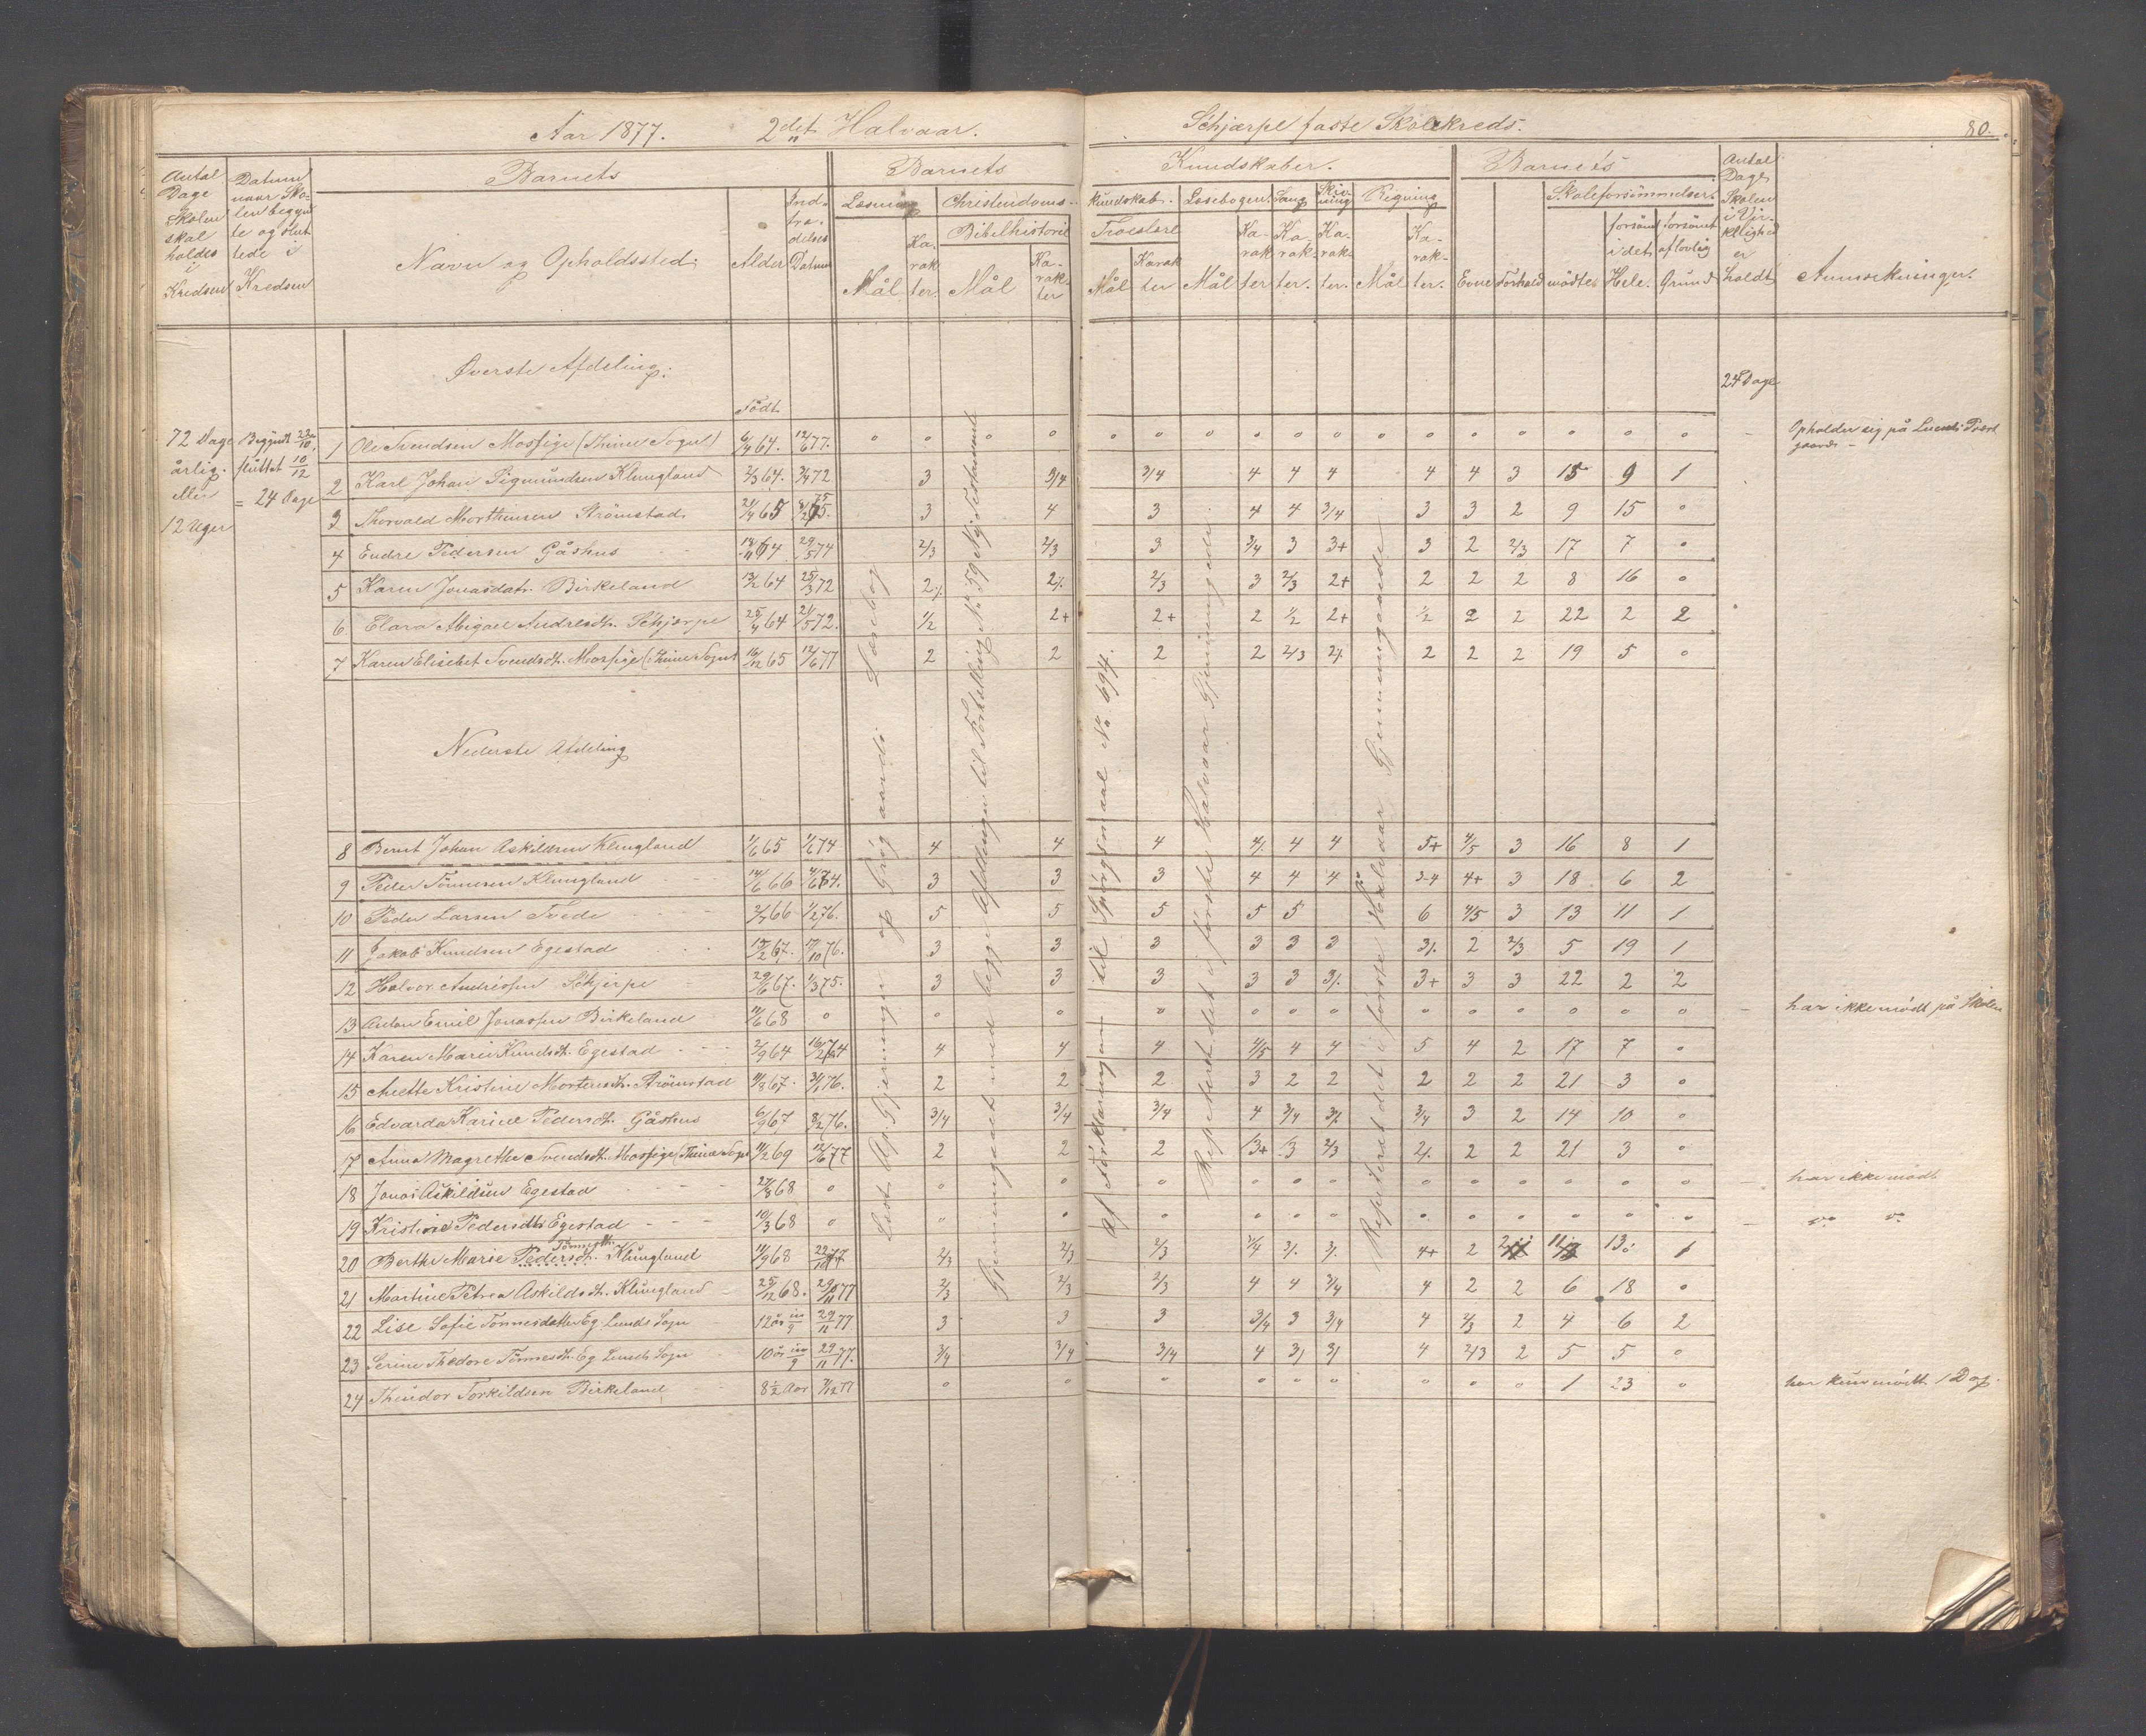 Aar 1877. 2det Halvaar. Schjærpe faste Skolekreds. 80.
Antal Dage Skolen skal holdes i Kredsen
Datum naar Skolen begyndte og sluttede i Kredsen
Barnets
Navn og Opholdssted
Alder
Indtrædelses Datum
Barnets Kundskaber.
Læsning Christendomskundskab. Læsebogen. Sang Skrivning Regning
Bibelhistorie Troeslære
Mål Karakter. Mål Karakter Mål Karakter Mål Karakter Karakter. Karakter. Mål Karakter.
Barnets
Evne Forhold
Skoleforsømmelser.
mødte forsømt i det Hele. forsømt af lovlig Grund
Antal Dage Skolen i Virklighed er holdt
Anmærkninger.
Øverste Afdeling.
Født.
24 Dage
72 Dage årlig. eller 12 Uger
Begyndt 22/10, sluttet 10/12 = 24 Dage
1 Ole Svendsen Mossige (Thime Sogn) 6/4 64. 12/6 77. " " " " " " " " " " " " " " " Opholder sig på Lunds Præstgaard
2 Karl Johan Sigmundsen Klungland 2/3 64. 3/4 72 3 3/4 3/4 4 4 4 4 4 3 15 9 1
3 Thorvald Morthensen Strömstad. 21/4 65 3 4 3 4 4 3/4 3 3 2 9 15 "
4 Endre Pedersen Gåshus 64 29/5 74 2/3 2/3 3 3/4 3 3+ 3 2 2/3 17 7 "
5 Karen Jonasdatr. Birkeland 13/2 64 25/3 72 2/. 2/. 2/3 3 2/3 2+ 2 2 2 8 16 "
6 Clara Abigael Andresdtr. Schjærpe 25/4 64 21/5 72. 1/2 2+ 2+ 2 1/2 2+ 1/2 2 2 22 2 2
7 Karen Elisebet Svendsdtr. Mossige (Thime Sogn) 16/12 65 12/6 77 2 2 2 2 2/3 2/. 2 2 2 19 5 "
Nederste Afdeling
8 Bernt Johan Askildsen Klungland 1/6 65 1/6 74 4 4 4 4/. 4 4 5+ 4/5 3 16 8 1
9 Peder Tönnesen Klungland 14/6 66 3 3 3 4 4 4 3-4 4+ 3 18 6 2
10 Peder Larsen Tvede 2/7 66 1/2 76. 5 5 5 5 5 6 4/5 3 13 11 1
11 Jakob Knudsen Egestad 67. 17/10 76. 3 3 3 3 3 3 3/. 2 2/3 5 19 1
12 Halvor Andressen Schjærpe 29/6 67. 1/3 75. 3 3 3 3 3 3/. 3+ 3 3 22 2 2
13 Anton Emil Jonassen Birkeland 11/6 68 " " " " " " " " " " " " " har ikke mødt på Skolen
14 Karen Marie Knudsdtr. Egestad 2/9 64 4 4 4 4/5 4 4 5 4 2 17 7 "
15 Anette Kristine Mortensdtr. Strömstad 11/8 67. 31/1 76. 2 2 2 3 2 2 2 2 2 21 3 "
16 Edvarda Karine Pedersdtr. Gåshus 6/9 67 8/2 76. 3/4 3/4 3/4 4 3/4 3/. 3/4 3 2 14 10 "
17 Anna Magrethe Svendsdtr. Mossige (Thime Sogn 11/2 69 12/6 77 2 2 2 3+ 3 2/3 2/. 2 2 21 3 "
18 Jonas Askildsen Egestad 27/3 68 " " " " " " " " " " " " " har ikke mødt
19 Kristine Pedersdtr. Egestad 10/3 68 " " " " " " " " " " " " "
20 Berthe Marie Pedersdtr. Tönnesdtr. Klungland 11/9 68 2/3 2/3 2/3 3/4 3/. 3/. 4+ 2 2 11 13 1
21 Martine Petrea Askildsdtr. Klungland 25/12 68. 29/10 77 2/3 2/3 2/3 4 4 3/4 4 2 2 6 18 "
22 Lise Sofie Tönnesdatter Eg Lunds Sogn 12 år 29/11 77 3 3 3 3/4 3 3/4 4 2/3 2 4 6 2
23 Serine Thedore Tönnesdtr. Eg Lunds Sogn 10 år 29/11 77. 3/4 3/4 3/4 4 3/. 3/. 4 2/3 2 5 5 "
24 Theodor Torkildsen Birkeland 8 1/2 Aar 3/12 77 " " " " " " " " " 1 23 " har kun mødt 1 Dag.
Gjennemgaaet med begge Afdelinger til Fortælling No 59 Nyt Testamente
Af Forklaringen til Spörgsmaal No 694.
Repeteret det i første Halvaar Gjennemgaaede.
Repeteret det i første Halvaar Gjennemgaaede